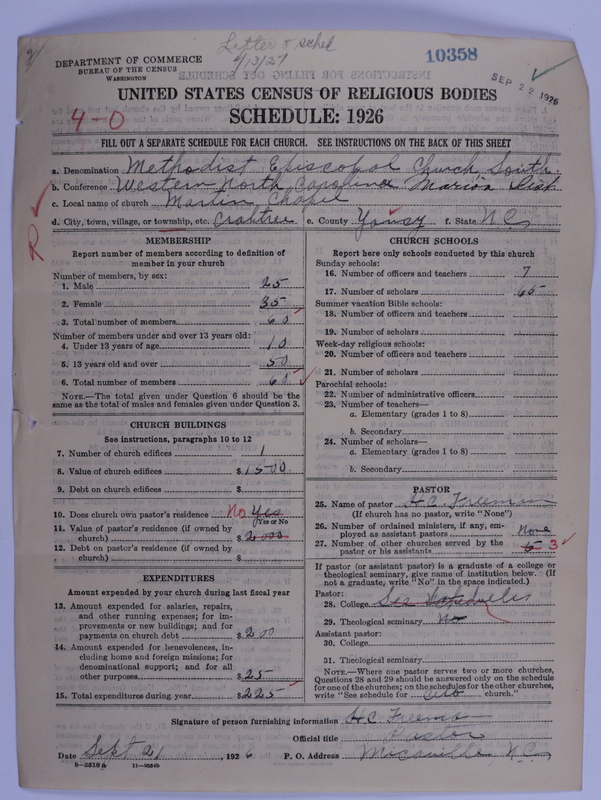 Letter & sched
4/13/27
DEPARTMENT OF COMMERCE
BUREAU OF THE CENSUS
WASHINGTON
10358
SEP 22 1926
UNITED STATES CENSUS OF RELIGIOUS BODIES
4-0
SCHEDULE: 1926
FILL OUT A SEPARATE SCHEDULE FOR EACH CHURCH. SEE INSTRUCTIONS ON THE BACK OF THIS SHEET
a. Denomination Methodist Episcopal Church, South.
b. Conference Western North Carolina Marion Dist
c. Local name of church Martin Chapel
d. City, town, village, or township, etc. Crabtree e. County Yancy f. State N.C.
R
MEMBERSHIP
Report number of members according to definition of member in your church
Number of members, by sex:
1. Male 25
2. Female 35
3. Total number of members 60
Number of members under and over 13 years old:
4. Under 13 years of age 10
5. 13 years old and over 50
6. Total number of members 60
NOTE.—The total given under Question 6 should be the
same as the total of males and females given under Question 3.
CHURCH BUILDINGS
See instructions, paragraphs 10 to 12
7. Number of church edifices 1
8. Value of church edifices $1500
9. Debt on church edifices $
10. Does church own pastor's residence No Yes
Yes or No
11. Value of pastor's residence (if owned by
church) $2000
12. Debt on pastor's residence (if owned by
church) $
EXPENDITURES
Amount expended by your church during last fiscal year
13. Amount expended for salaries, repairs,
and other running expenses; for im-
provements or new buildings; and for
payments on church debt $200
14. Amount expended for benevolences, in-
cluding home and foreign missions; for
denominational support; and for all
other purposes $25
15. Total expenditures during year $225
CHURCH SCHOOLS
Report here only schools conducted by this church
Sunday schools:
16. Number of officers and teachers 7
17. Number of scholars 65
Summer vacation Bible schools:
18. Number of officers and teachers
19. Number of scholars
Week-day religious schools:
20. Number of officers and teachers
21. Number of scholars
Parochial schools:
22. Number of administrative officers
23. Number of teachers—
a. Elementary (grades 1 to 8)
b. Secondary
24. Number of scholars—
a. Elementary (grades 1 to 8)
b. Secondary
PASTOR
25. Name of pastor H.C. Freeman
(If church has no pastor, write "None")
26. Number of ordained ministers, if any, em-
ployed as assistant pastors None
27. Number of other churches served by the
pastor or his assistants 5 3
If pastor (or assistant pastor) is a graduate of a college or
theological seminary, give name of institution below. (If
not a graduate, write "No" in the space indicated.)
Pastor:
28. College
29. Theological seminary No
Assistant pastor:
30. College
31. Theological seminary
NOTE.—Where one pastor serves two or more churches,
Questions 28 and 29 should be answered only on the schedule
for one of the churches; on the schedules for the other churches,
write "See schedule for church."
Signature of person furnishing information H C Freeman
Official title Pastor
Date Sept 21, 1926 P. O. Address Micaville N.C.
8-5518 A 11-9054b